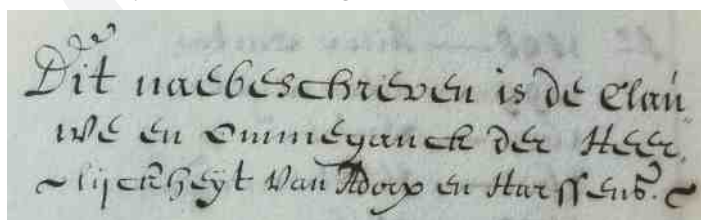 Dit naebeschreven is de Clau
we en ommeganck der Heer,
~ lijckheyt van Adorp en Harssens. ~